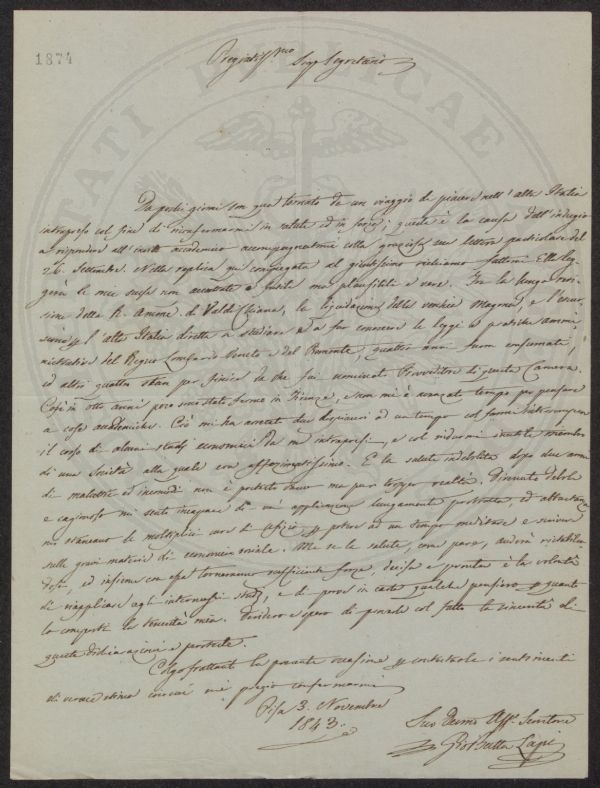 1874
Pregiatissmo Sigr Segretario
Da pochi giorni son qua tornato da un viaggio di piacere nell'alta Italia
intrapreso col fine di rinfrancarmi in salute ed in forze; questa è la causa dell'indugio
a rispondere all' accademico accompagnatomi colla graziosa sua lettera particolare del
26. Settembre. Nella replica qui congiunta al giustissimo richiamo fattomi Ella leg-
gerà le mie scuse non accattate o futili ma plausibili e vere. Fra la lunga revi-
sione della R. Amm. di Val di Chiana, la liquidazione delle vecchie Magone, e l'escur-
sione l'alta Italia diretta a studiare e a far conoscere le leggi e pratiche ammi-
nistrative del Regno Lombardo Veneto e del Piemonte, quattro anni furon consumati,
ed altri quattro stan per finire da che fui nominato Provveditore di questa Camera.
Così in otto anni poco sono stato fermo in Firenze, e non mi è avanzato tempo per pensare
a cose accademiche. Ciò mi ha arrecato due dispiaceri ad un tempo col farmi interrompere
il corso di alcuni studj economici da me intrapresi, e col ridurmi inutile membro
di una Società alla quale ero affezionatissimo. E la salute indebolita dopo due anni
di malattie ed incomodi non è pretesto vano ma pur troppo realtà. Divenuto debole
e cagionoso mi sento incapace di un applicazione lungamente protratta, ed abbastanza
mi stancano le molteplici cure d'ufizio p potere ad un tempo meditare e scrivere
sulle gravi materie di economia sociale. Ma se la salute, come pare, andrà ristabilen-
dosi, ed insieme con essa torneranno sufficienti forze, decisa e pronta è la volontà
di riapplicare agli interrotti studj, e di porre in carta qualche pensiero p quanto
lo comporti la tenuità mia. Desidero e spero di provarle col fatto la sincerità di
queste dichiarazioni e proteste.
Colgo frattanto la presente occasione p contestarle i sentimenti
di verace stima coi quali mi pregio confermarmi
Pisa 3. Novembre
1843.
Suo Devmo Affo Servitore
Gio Batta Lapi